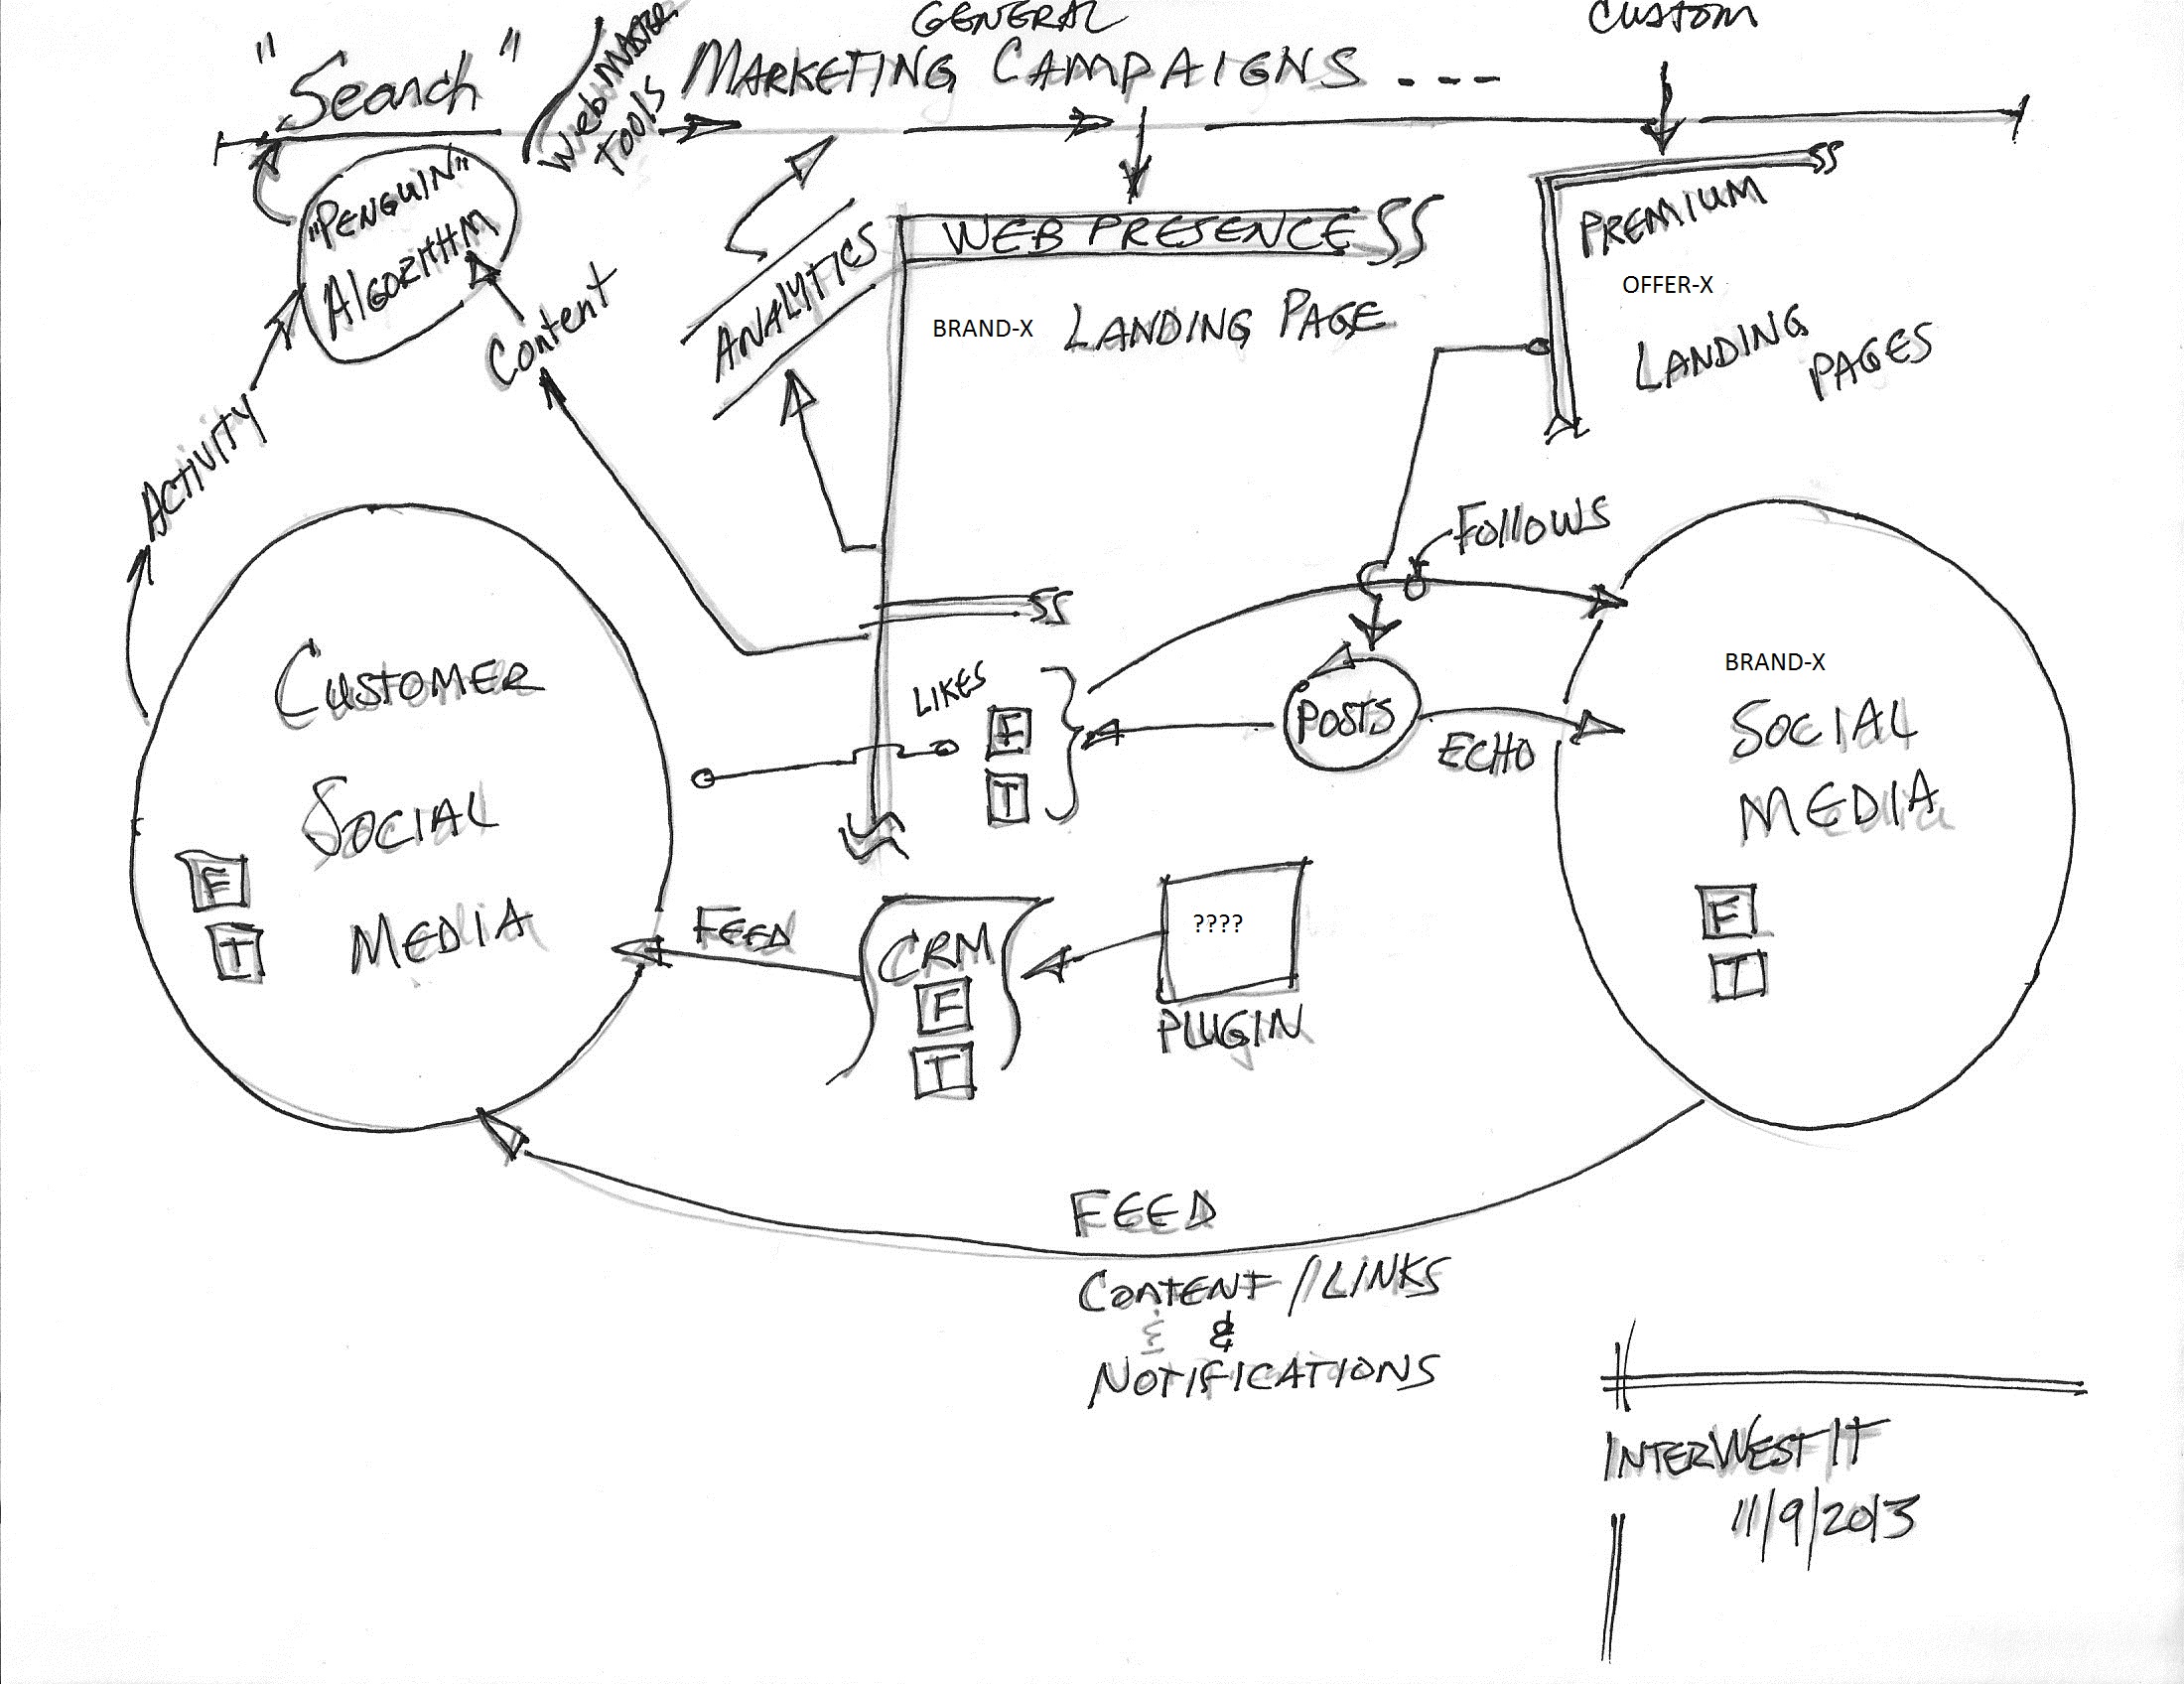 GENERAL
CUSTOM
"Search"
WebMASTER
TOOLS
MARKETING CAMPAIGNS ---
"PENGUIN"
ALGORITHM
Content
ACTIVITY
ANALYTICS
WEB PRESENCE SS
BRAND-X LANDING PAGE
SS
PREMIUM
OFFER-X
LANDING
PAGES
FOLLOWS
SS
LIKES
F
T
POSTS
ECHO
CUSTOMER
SOCIAL
MEDIA
F
T
BRAND-X
SOCIAL
MEDIA
F
T
FEED
CRM
F
T
????
PLUGIN
FEED
CONTENT/LINKS
& &
NOTIFICATIONS
INTERWEST IT
11/9/2013